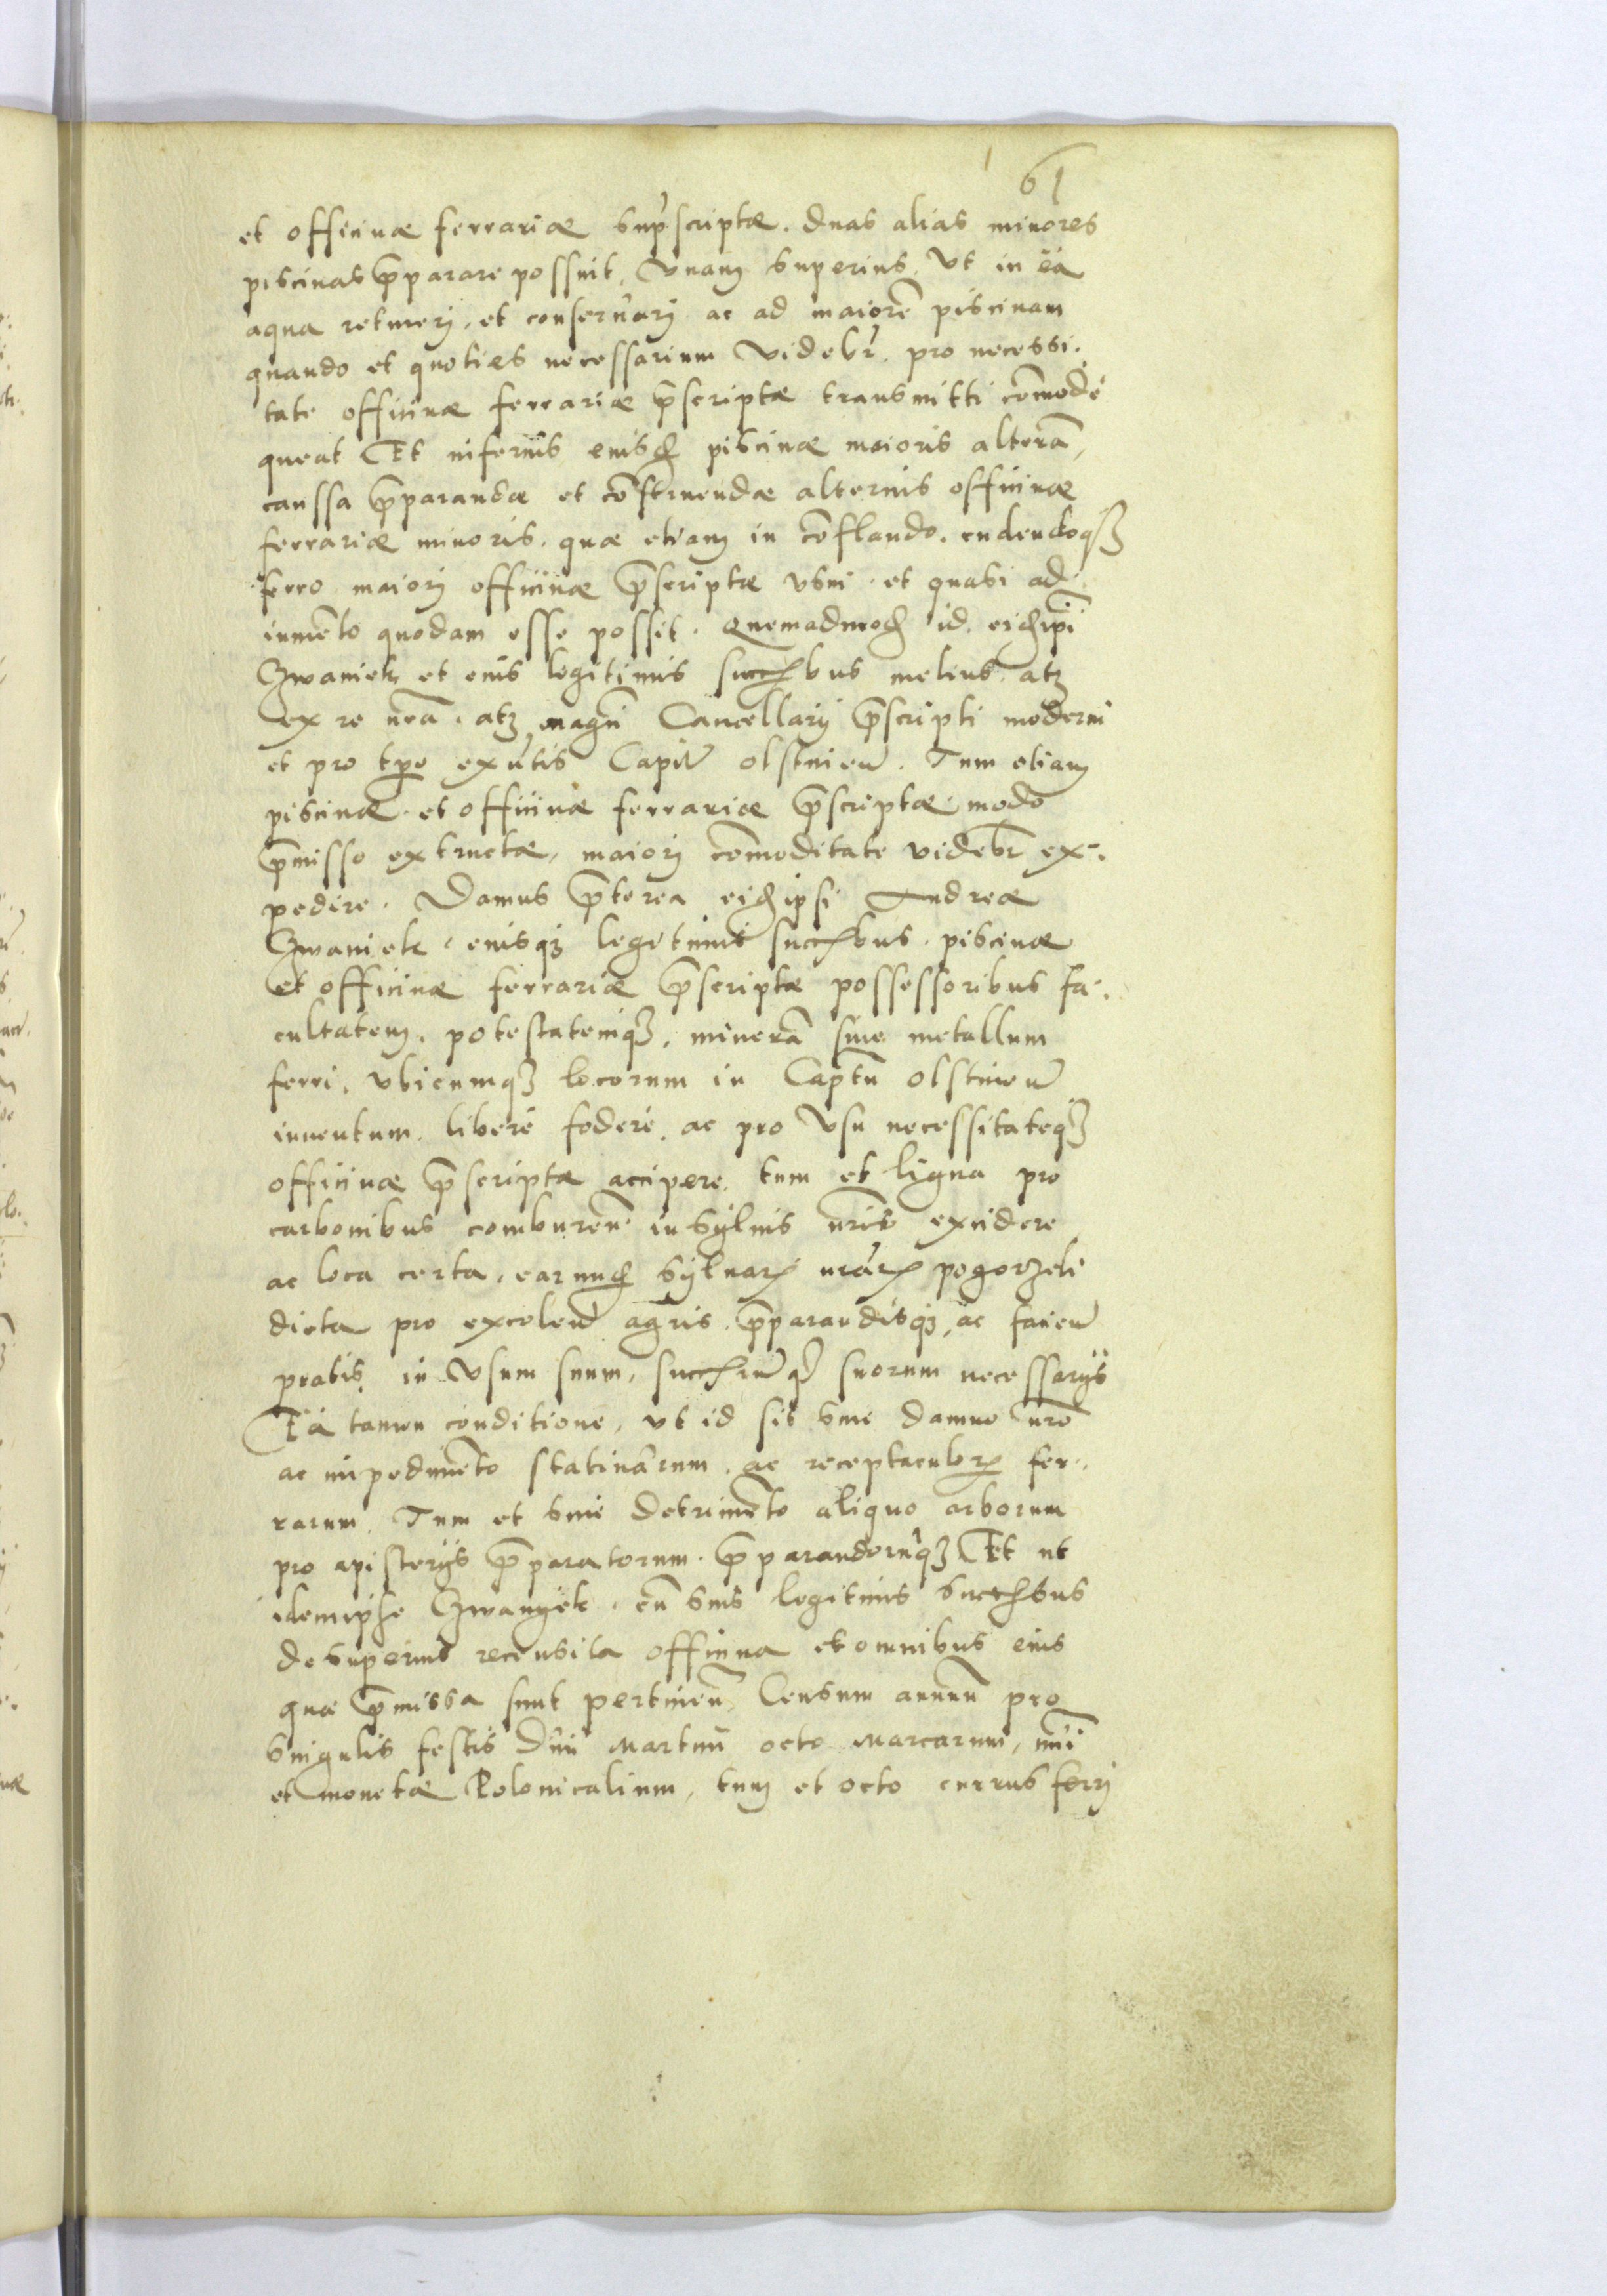 61
et officinæ ferrariæ suprscriptæ. duas alias minores
piscinas p̄parare possint, Vnam superius, Vt in ea
aqua retineri, et conseruari ac ad maiorē piscinam
quando et quoties necessarium Videbr̄. pro necessi.
tate officinæ ferrariæ p̄scriptæ transmitti cōmode
queat Et inferius eiusd piscinæ maioris alterā,
caussa p̄parandæ et cōstruendæ alterius officinæ
ferrariæ minoris. quæ etiam in cōflando. cudendoq3
ferro maiori officinæ p̄scriptæ vsui et quasi ad
iumēto quodam esse possit. Quemadmod id. eid ipi
Czwaniek et eius legitimis succ̄bus melius atq3
ex re nrā. atq3 magn̄i Cancellarij p̄scripti moderni
et pro tpe exn̄tis Capit olstinen. Tum etiam
piscinæ et officinæ ferrariæ p̄scriptæ modo
p̄misso extructæ, maiori cōmoditate videbr̄ ex.
pedire. Damus p̄terea eid ipsi Andreæ
Czwaniek, eiusq3 legitimis succ̄bus. piscinæ
et officinæ ferrariæ p̄scriptæ possessoribus fa.
cultatem. potestatemq3, minerā siue metallum
ferri, vbicumq3 locorum in Captū olstinen
inuentum. libere fodere. ac pro Vsu necessitateq3
officinæ p̄scriptæ accipere, tum et ligna pro
carbonibus comburen in syluis nr̄is excidere
ac loca certa, earund syluar nrār pogorzeli
dicta pro excolen agris. p̄parandisq3, ac facien
pratis, in Vsum suum, succ̄umq3 suorum necessarijs
Ea tamen conditione, vt id sit sine damno nrō
ac impedimēto statiuarum. ac receptaculor fer.
rarum. Tum et sine detrimēto aliquo arborum
pro apisterijs p̄paratorum. p̄parandorūq3 Et vt
idem ipse Czwanyek. cū suis legitimis succ̄bus
de superius recensita officina et omnibus eius
quæ p̄missa sunt pertinen, Censum annuū pro
singulis festis Diui Martini octo Marcarum, nūi
et monetæ Polonicalium, tum et octo currus ferri